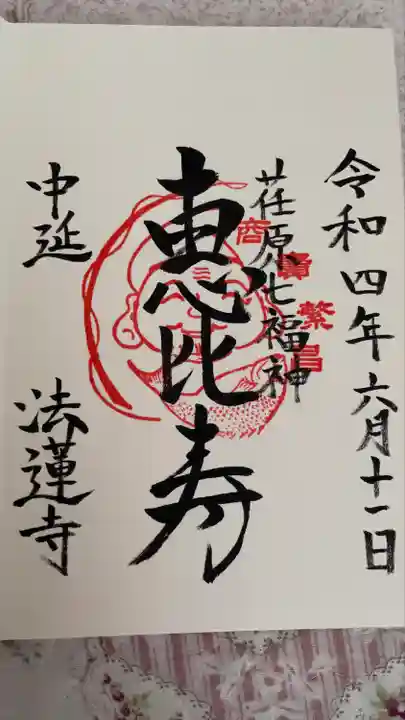 令和四年六月十一日
荏原七福神
商賣繁昌
恵比寿
中延
法蓮寺